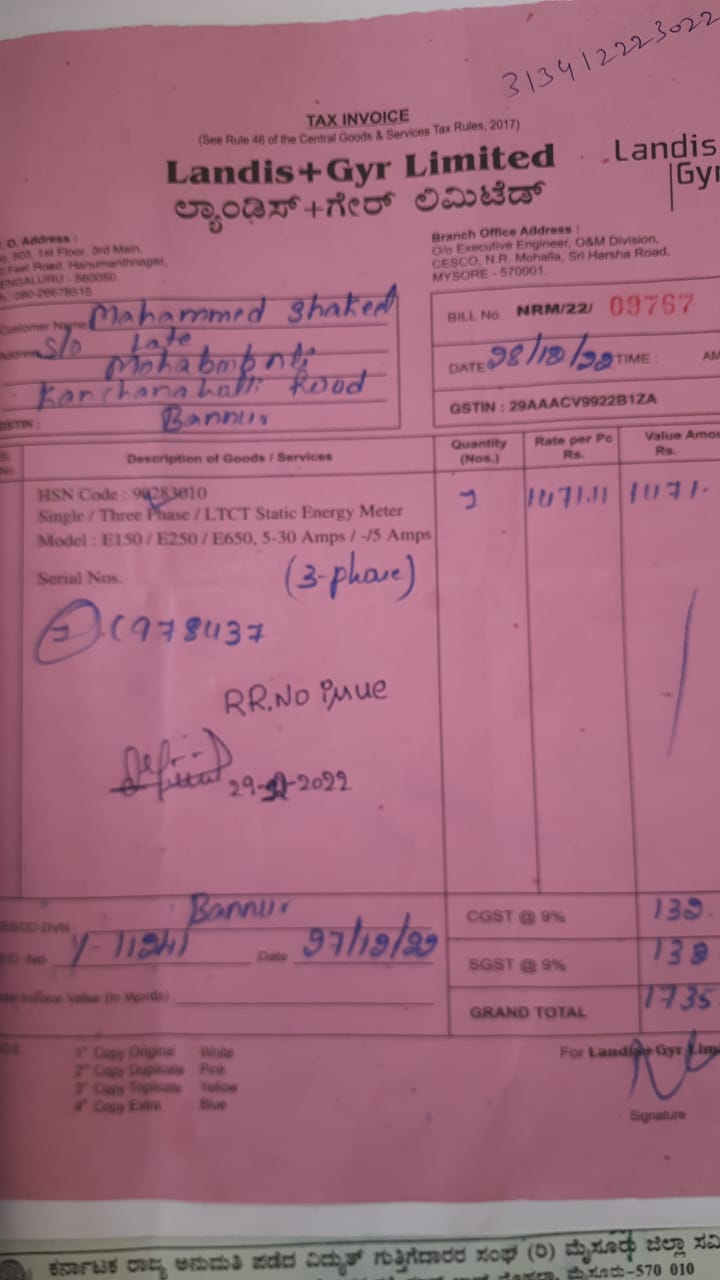 313412223022
TAX INVOICE
(See Rule 46 of the Central Goods & Services Tax Rules, 2017)
Landis+Gyr Limited
Landis
Gyr
ಲ್ಯಾಂಡಿಸ್+ಗೇರ್ ಲಿಮಿಟೆಡ್
O. Address :
503, 1st Floor, 3rd Main,
Feet Road, Hanumanthnagar,
ENGALURU - 560050.
080-26678515
Branch Office Address :
O/o Executive Engineer, O&M Division,
CESCO, N.R. Mohalla, Sri Harsha Road,
MYSORE - 570001.
Customer Name Mahammed Shakeel
Address S/o Late
Kanchanahalli Road
GSTIN : Bannur
BILL No. NRM/22/ 09767
DATE 28/12/22 TIME : AM
GSTIN : 29AAACV9922B1ZA
Sl No Description of Goods / Services Quantity (Nos.) Rate per Pc Rs. Value Amou Rs.
HSN Code : 90283010
Single / Three Phase / LTCT Static Energy Meter
Model : E150 / E250 / E650, 5-30 Amps / -/5 Amps
1 1471.11 1471.
Serial Nos.
(3-phase)
978437
RR.No issue
29-12-2022
DVN Bannur
No. Y-11241 Date 27/12/22
Value (In Words)
CGST @ 9% 132.
SGST @ 9% 132
GRAND TOTAL 1735
1st Copy Original White
2nd Copy Duplicate Pink
3rd Copy Triplicate Yellow
4th Copy Extra Blue
For Landis+Gyr Lim
Signature
ಕರ್ನಾಟಕ ರಾಜ್ಯ ಅನುಮತಿ ಪಡೆದ ವಿದ್ಯುತ್ ಗುತ್ತಿಗೆದಾರರ ಸಂಘ (ರಿ) ಮೈಸೂರು ಜಿಲ್ಲಾ ಸಮಿ
ಮೈಸೂರು-570 010